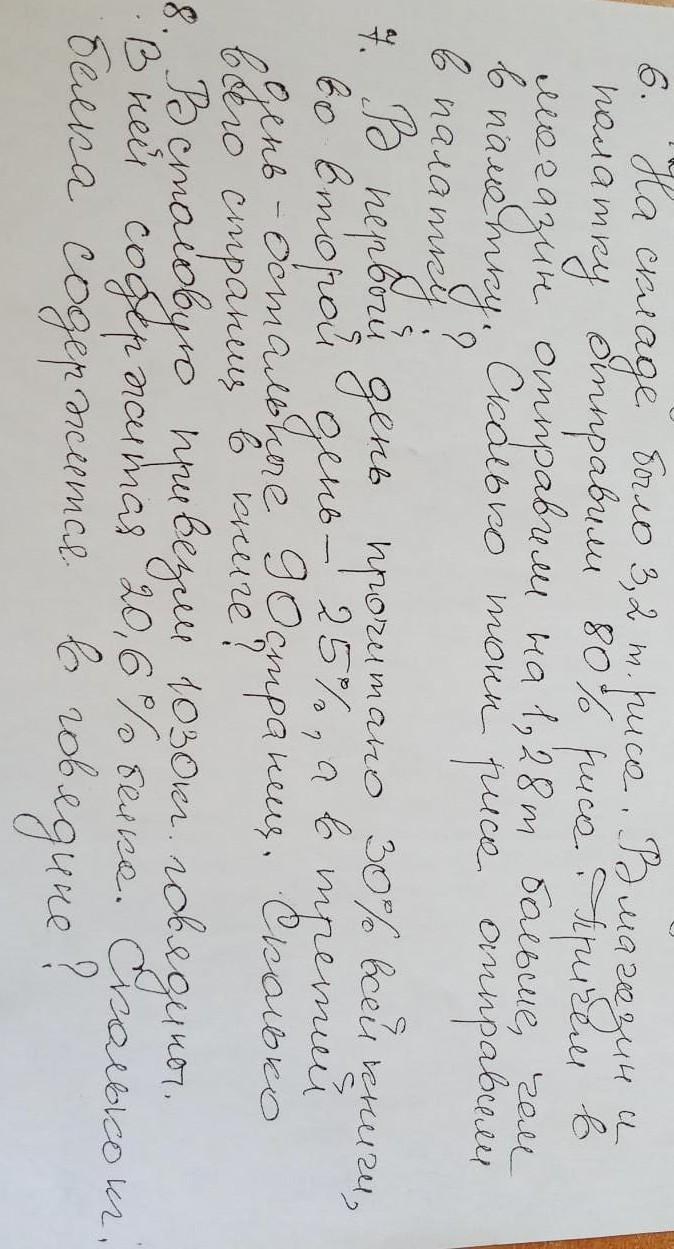 6. На складе было 3,2 т. риса. В магазин и
палатку отправили 80% риса. Причем в
магазин отправили на 1,28т больше, чем
в палатку. Сколько тонн риса отправили
в палатку?
7. В первый день прочитано 30% всей книги,
во второй день - 25%, а в третий
день - остальные 90 страниц. Сколько
всего страниц в книге?
8. В столовую привезли 1030кг. говядины.
В ней содержится 20,6% белка. Сколько кг.
белка содержится в говядине?